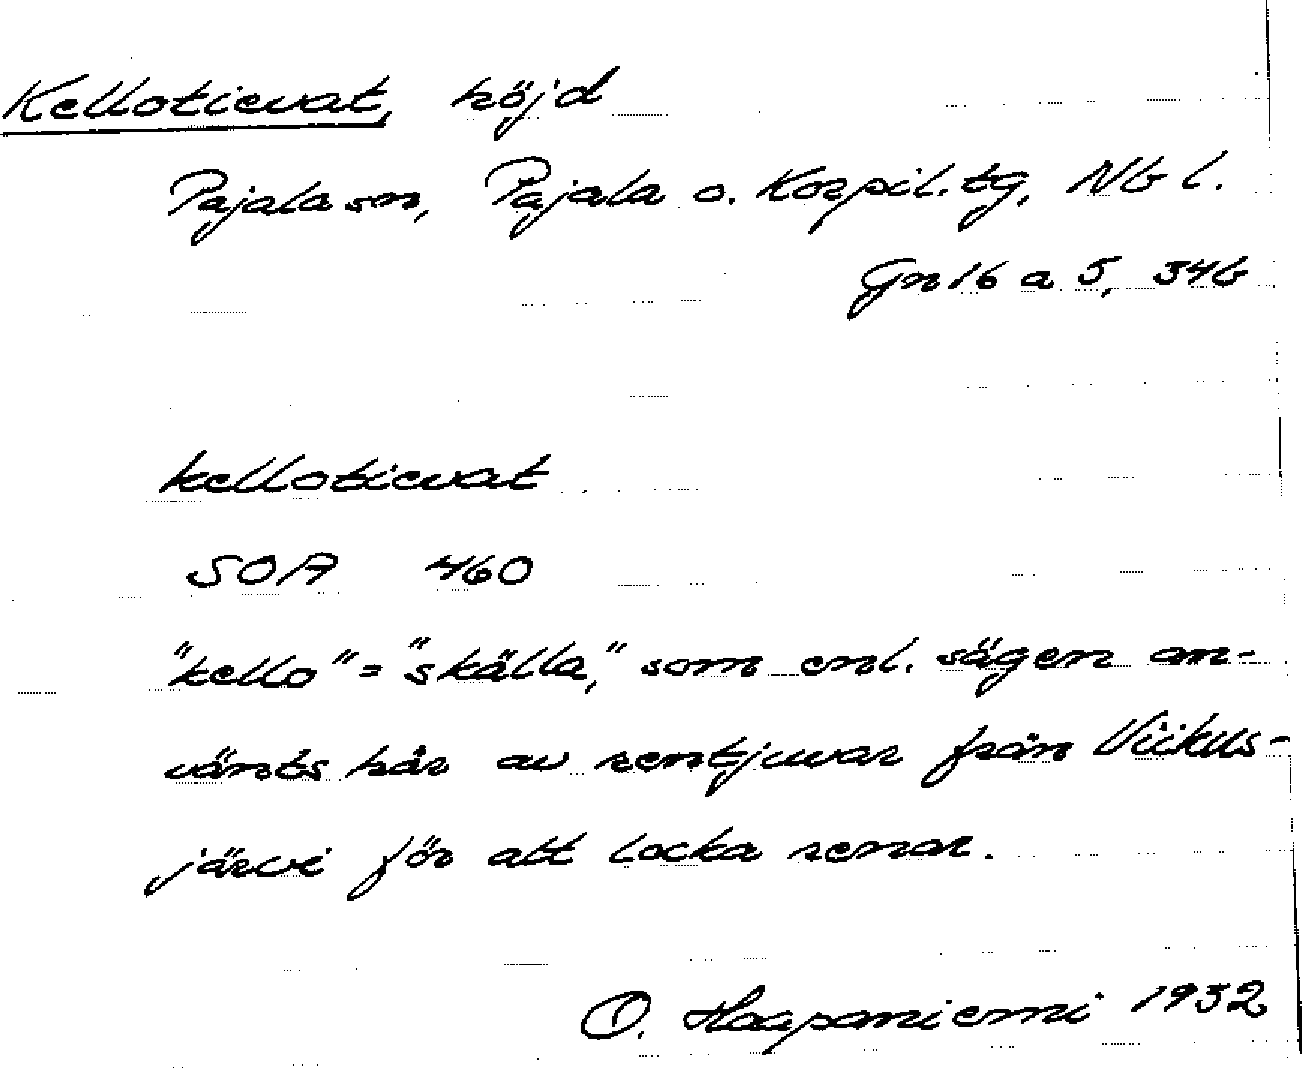 Kellotievat, höjd
Pajala sn, Pajala o. Korpil. tg, Nb l.
Gn 16 a 5, 34b
kellotievat
SOA 460
"kello" = "skälla," som enl. sägen an-
vänts här av rentjuvar från Viikus-
järvi för att locka renar.
O. Haapaniemi 1932